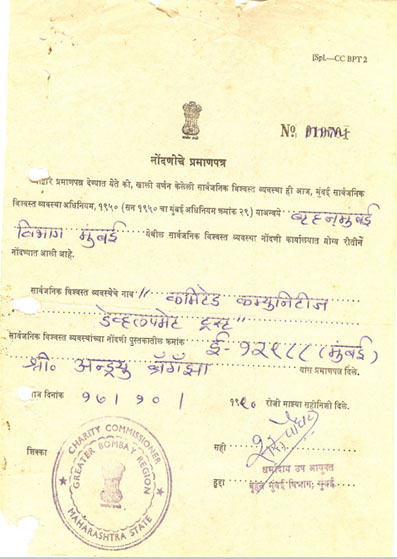 [Spl.—CC BPT 2
No
नोंदणीचे प्रमाणपत्र
प्रमाणपत्र देण्यात येते की, खाली वर्णन केलेली सार्वजनिक विश्वस्त व्यवस्था ही आज, मुंबई सार्वजनिक
विश्वस्त व्यवस्था अधिनियम, १९५० (सन १९५० चा मुंबई अधिनियम क्रमांक २९) याअन्वये बृहन्मुंबई
विभाग मुंबई येथील सार्वजनिक विश्वस्त व्यवस्था नोंदणी कार्यालयात योग्य रीतीने
नोंदण्यात आली आहे.
सार्वजनिक विश्वस्त व्यवस्थेचे नाव " कमिटेड कम्युनिटीज
डेव्हलपमेंट ट्रस्ट"
सार्वजनिक विश्वस्त व्यवस्थांच्या नोंदणी पुस्तकातील क्रमांक ई-१२९८८ (मुंबई)
श्री. अन्ड्र्यु यांस प्रमाणपत्र दिले.
आज दिनांक १७/१०/ १९९० रोजी माझ्या सहीनिशी दिले.
शिक्का
सही
हुद्दा
धर्मादाय उप आयुक्त
बृहन्मुंबई विभाग, मुंबई
CHARITY COMMISSIONER
GREATER BOMBAY REGION
MAHARASHTRA STATE